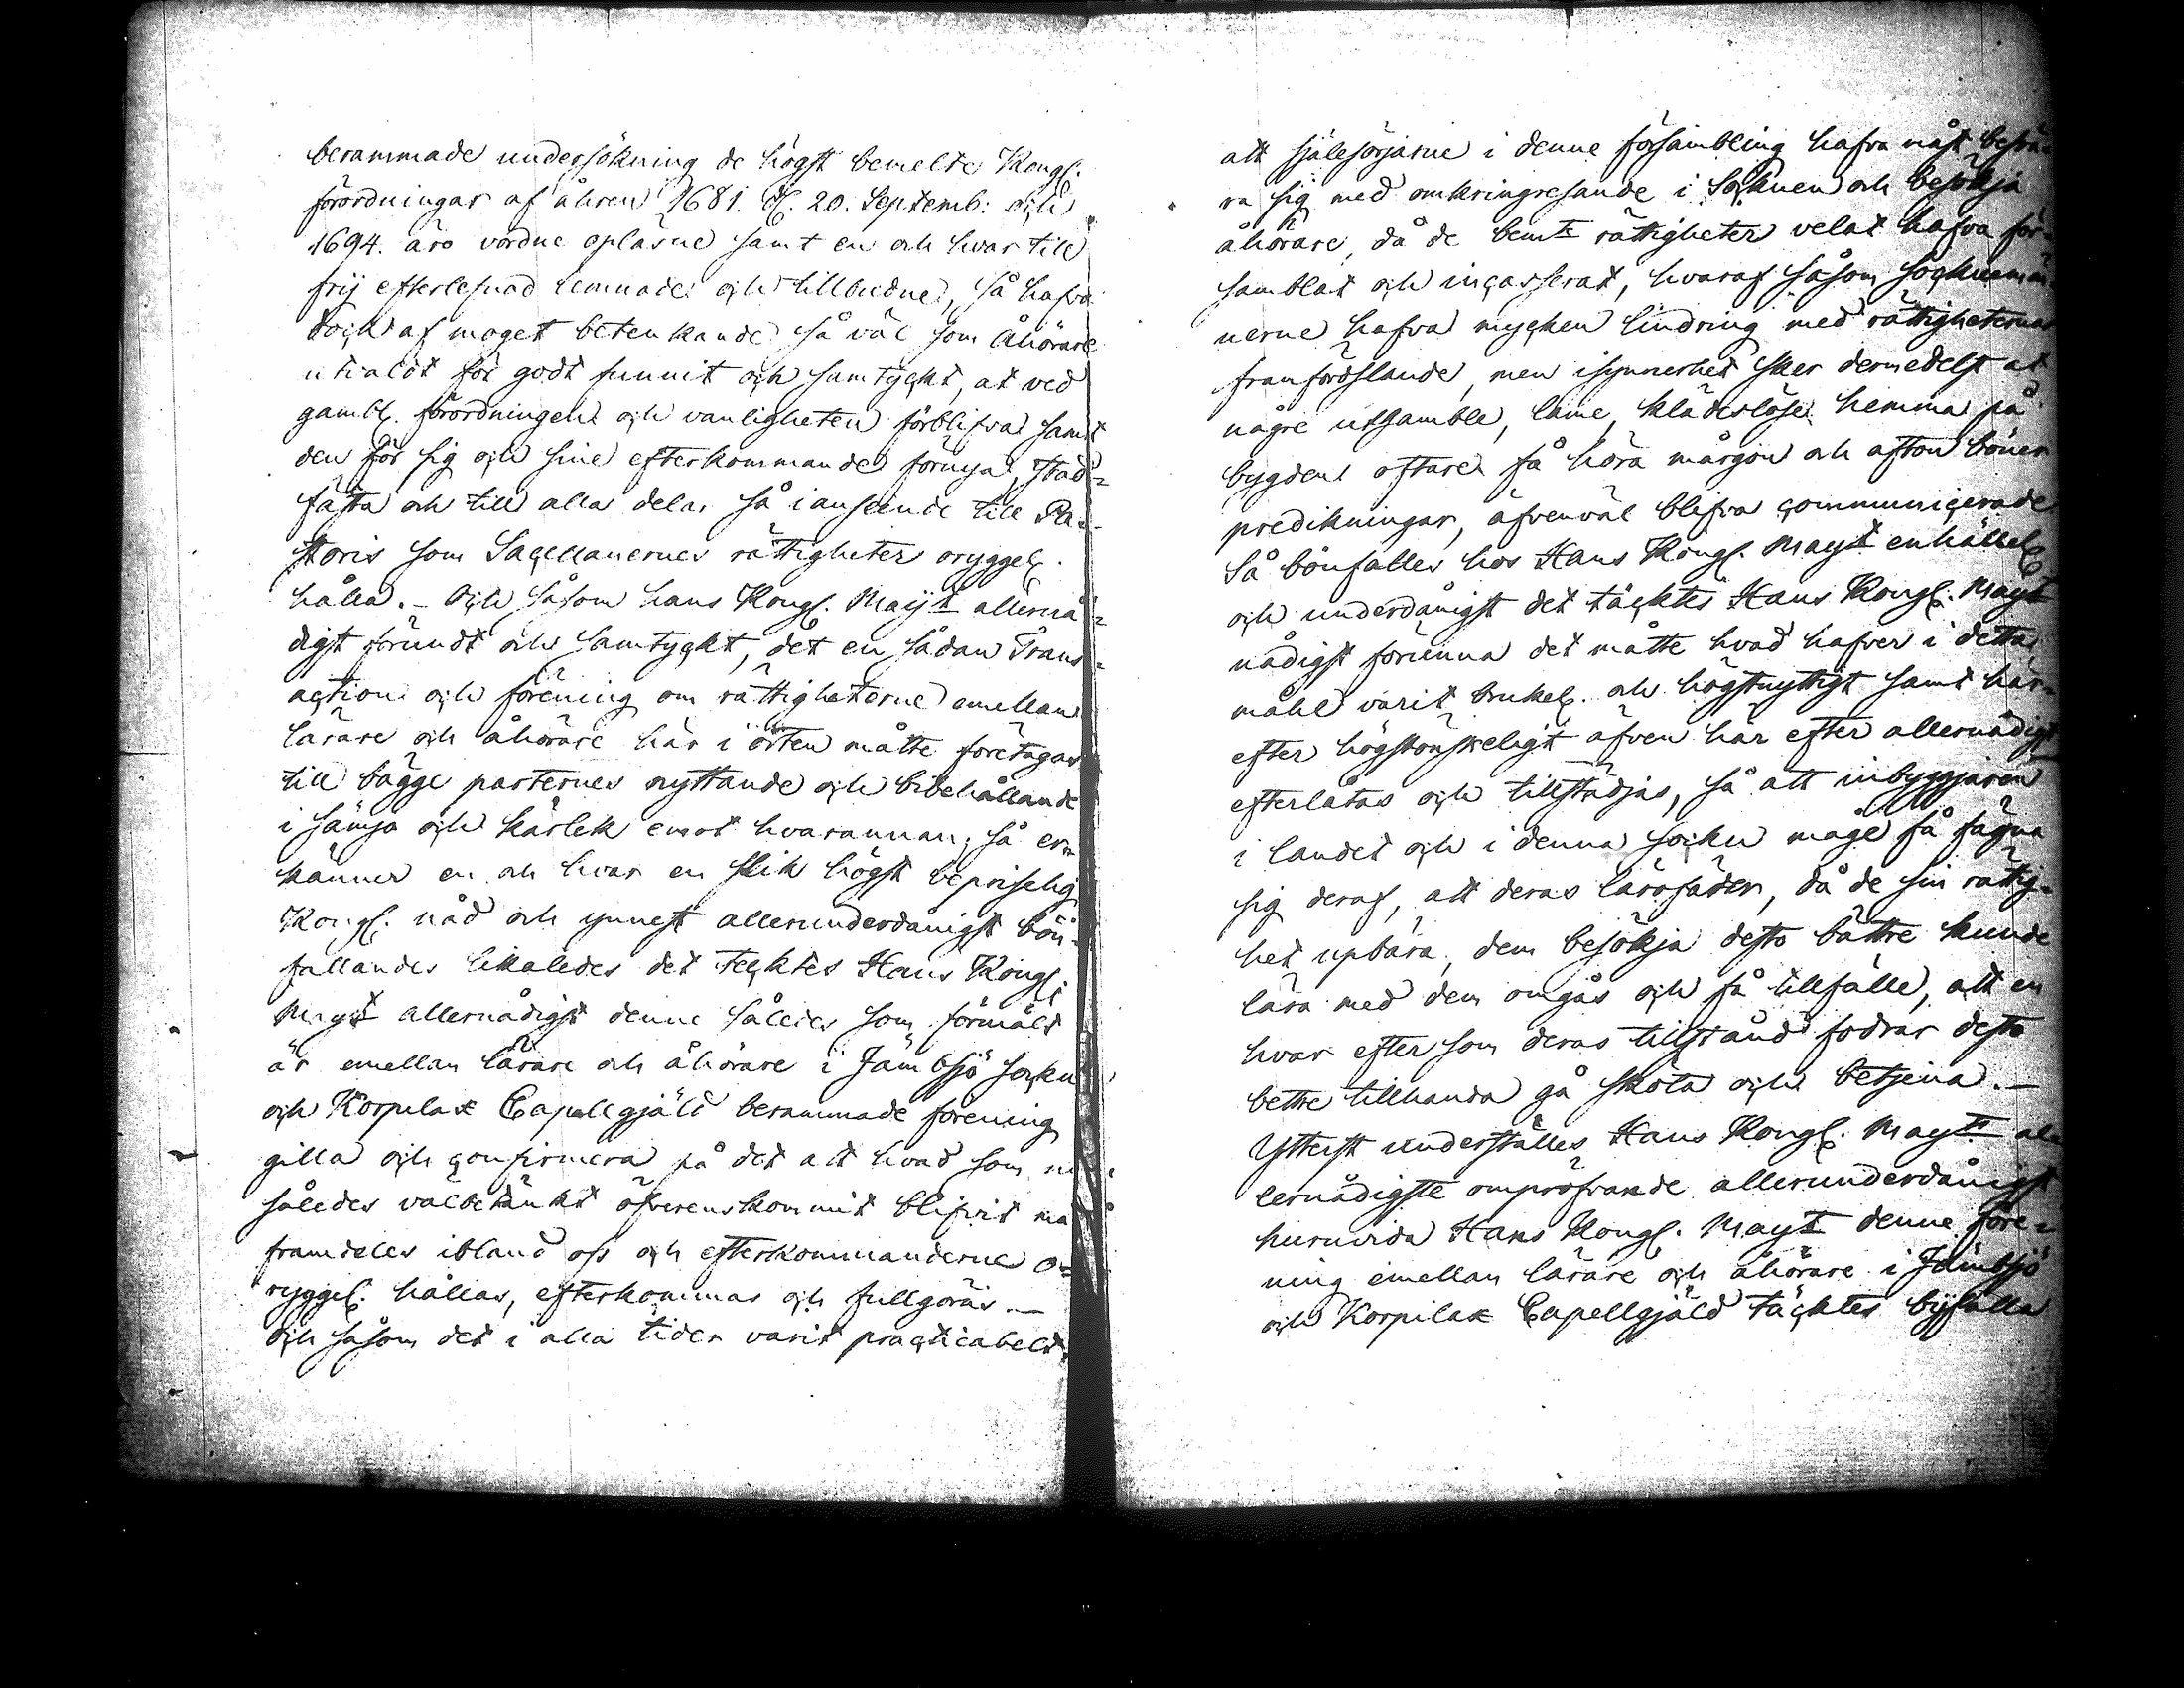 berammade undersökning de högst bemelte Kongl.
förordningar af åhren 1681. d. 20. Septemb: och
1694. äro vordne opläsne samt en och hvar till
frij efterlefnad lemnade och tillbudne, så hafva
doch af moget betenkande så väl som Åhörare
utvaldt för godt funnit och samtyckt, at ved
gambl. förordningen och vanligheten förblifva samt
den för sig och sine efterkommande förnya, stad-
fästa och till alla delar så i anseende till Pa-
storis som Sacellanernes rättigheter oryggel.
hålla. – Och såsom hans Kongl. Maijt allernå-
digst förundt och samtyckt, det en sådan Trans-
action och förening om rättigheterne emellan
lärare och åhörare här i orten måtte företagas
till bägge parternes nyttande och bibehållande
i sämja och kärlek emot hvarannan; så er-
känner en och hvar en slik högst beprislig
Kongl. nåd och ynnest allerunderdånigst bön-
fallandes likaledes det tecktes Hans Kongl.
Mayt allernådigst denne således som förmält
är emellan lärare och åhörare i Jämbsjö sockn
och Korpilax Capellgjäld berammade förening
gilla och confirmera på det att hvad som nu
således välbetänkt öfverenskommit blifvit må
framdeles ibland oss och efterkommanderne o-
ryggel. hållas, efterkommas och fullgöras. –
Och såsom det i alla tider varit practicabelt,
att själesörjarne i denne försambling hafva måst besvä-
ra sig med omkringresande i Socknen och besökja
åhörare, då de bemte rättigheter velat hafva för-
samblat och incasserat, hvaraf såsom socknemän-
nerne hafva mycken lindring med rättigheternas
framfordslande, men isynnerhet sker dermedelst at
någre utgamble, lame, klädeslöse hemma på
bygden oftare få höra mårgon och afton böner
predikningar, äfvenväl blifva communicerade
Så bönfalles hos Hans Kongl. Mayt enhällel.
och underdånigst det täcktes Hans Kongl. Mayt
nådigst förunna det måtte hvad hafver i detta
måhl varit brukel. och högstnyttigt samt här-
efter högstönskeligt äfven här efter allernådigst
efterlåtas och tillstädjas, så att inbyggjaren
i landet och i denna sockn måge få fägna
sig deraf, att deras lärofäder, då de sin rättig-
het upbära, dem besökja desto bättre kunde
lära med dem omgås och få tillfälle, att en
hvar efter som deras tillstånd fodrar desto
bettre tillhanda gå sköta och betjena. –
Ytterst underställes Hans Kongl. Mayts al-
lernådigste ompröfvande allerunderdånigst
huruvida Hans Kongl. Mayt denne före-
ning emellan lärare och åhörare i Jämbsjö
och Korpilax Capellgjäld täcktes bijfalla